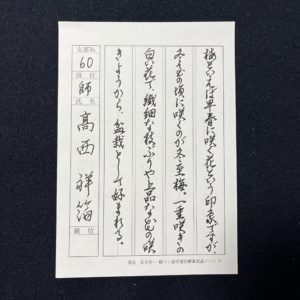 梅といえば早春に咲く花という印象ですが、
冬至の頃に咲くのが冬至梅。一重咲きの
白い花で、繊細な枝ぶりや上品な花の咲
きようから、盆栽として好まれる。
支部No.
60
段位
師
氏名
高西祥箔
級位